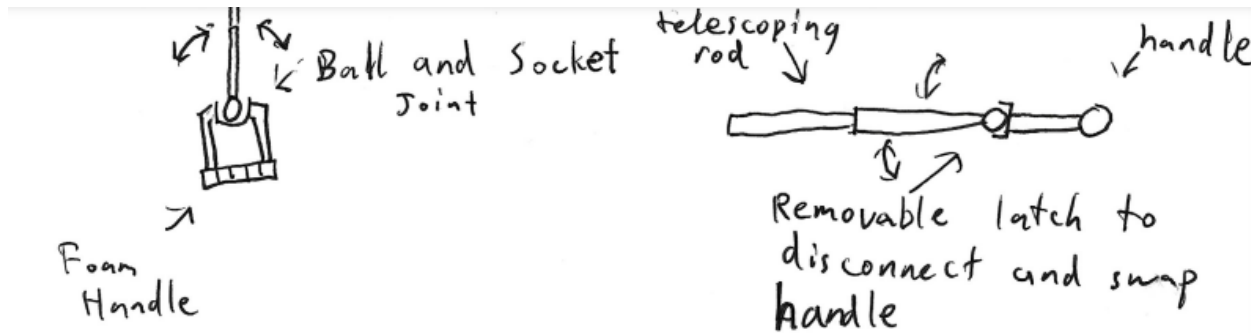 Ball and Socket
Joint
Foam
Handle
telescoping
rod
handle
Removable latch to
disconnect and swap
handle